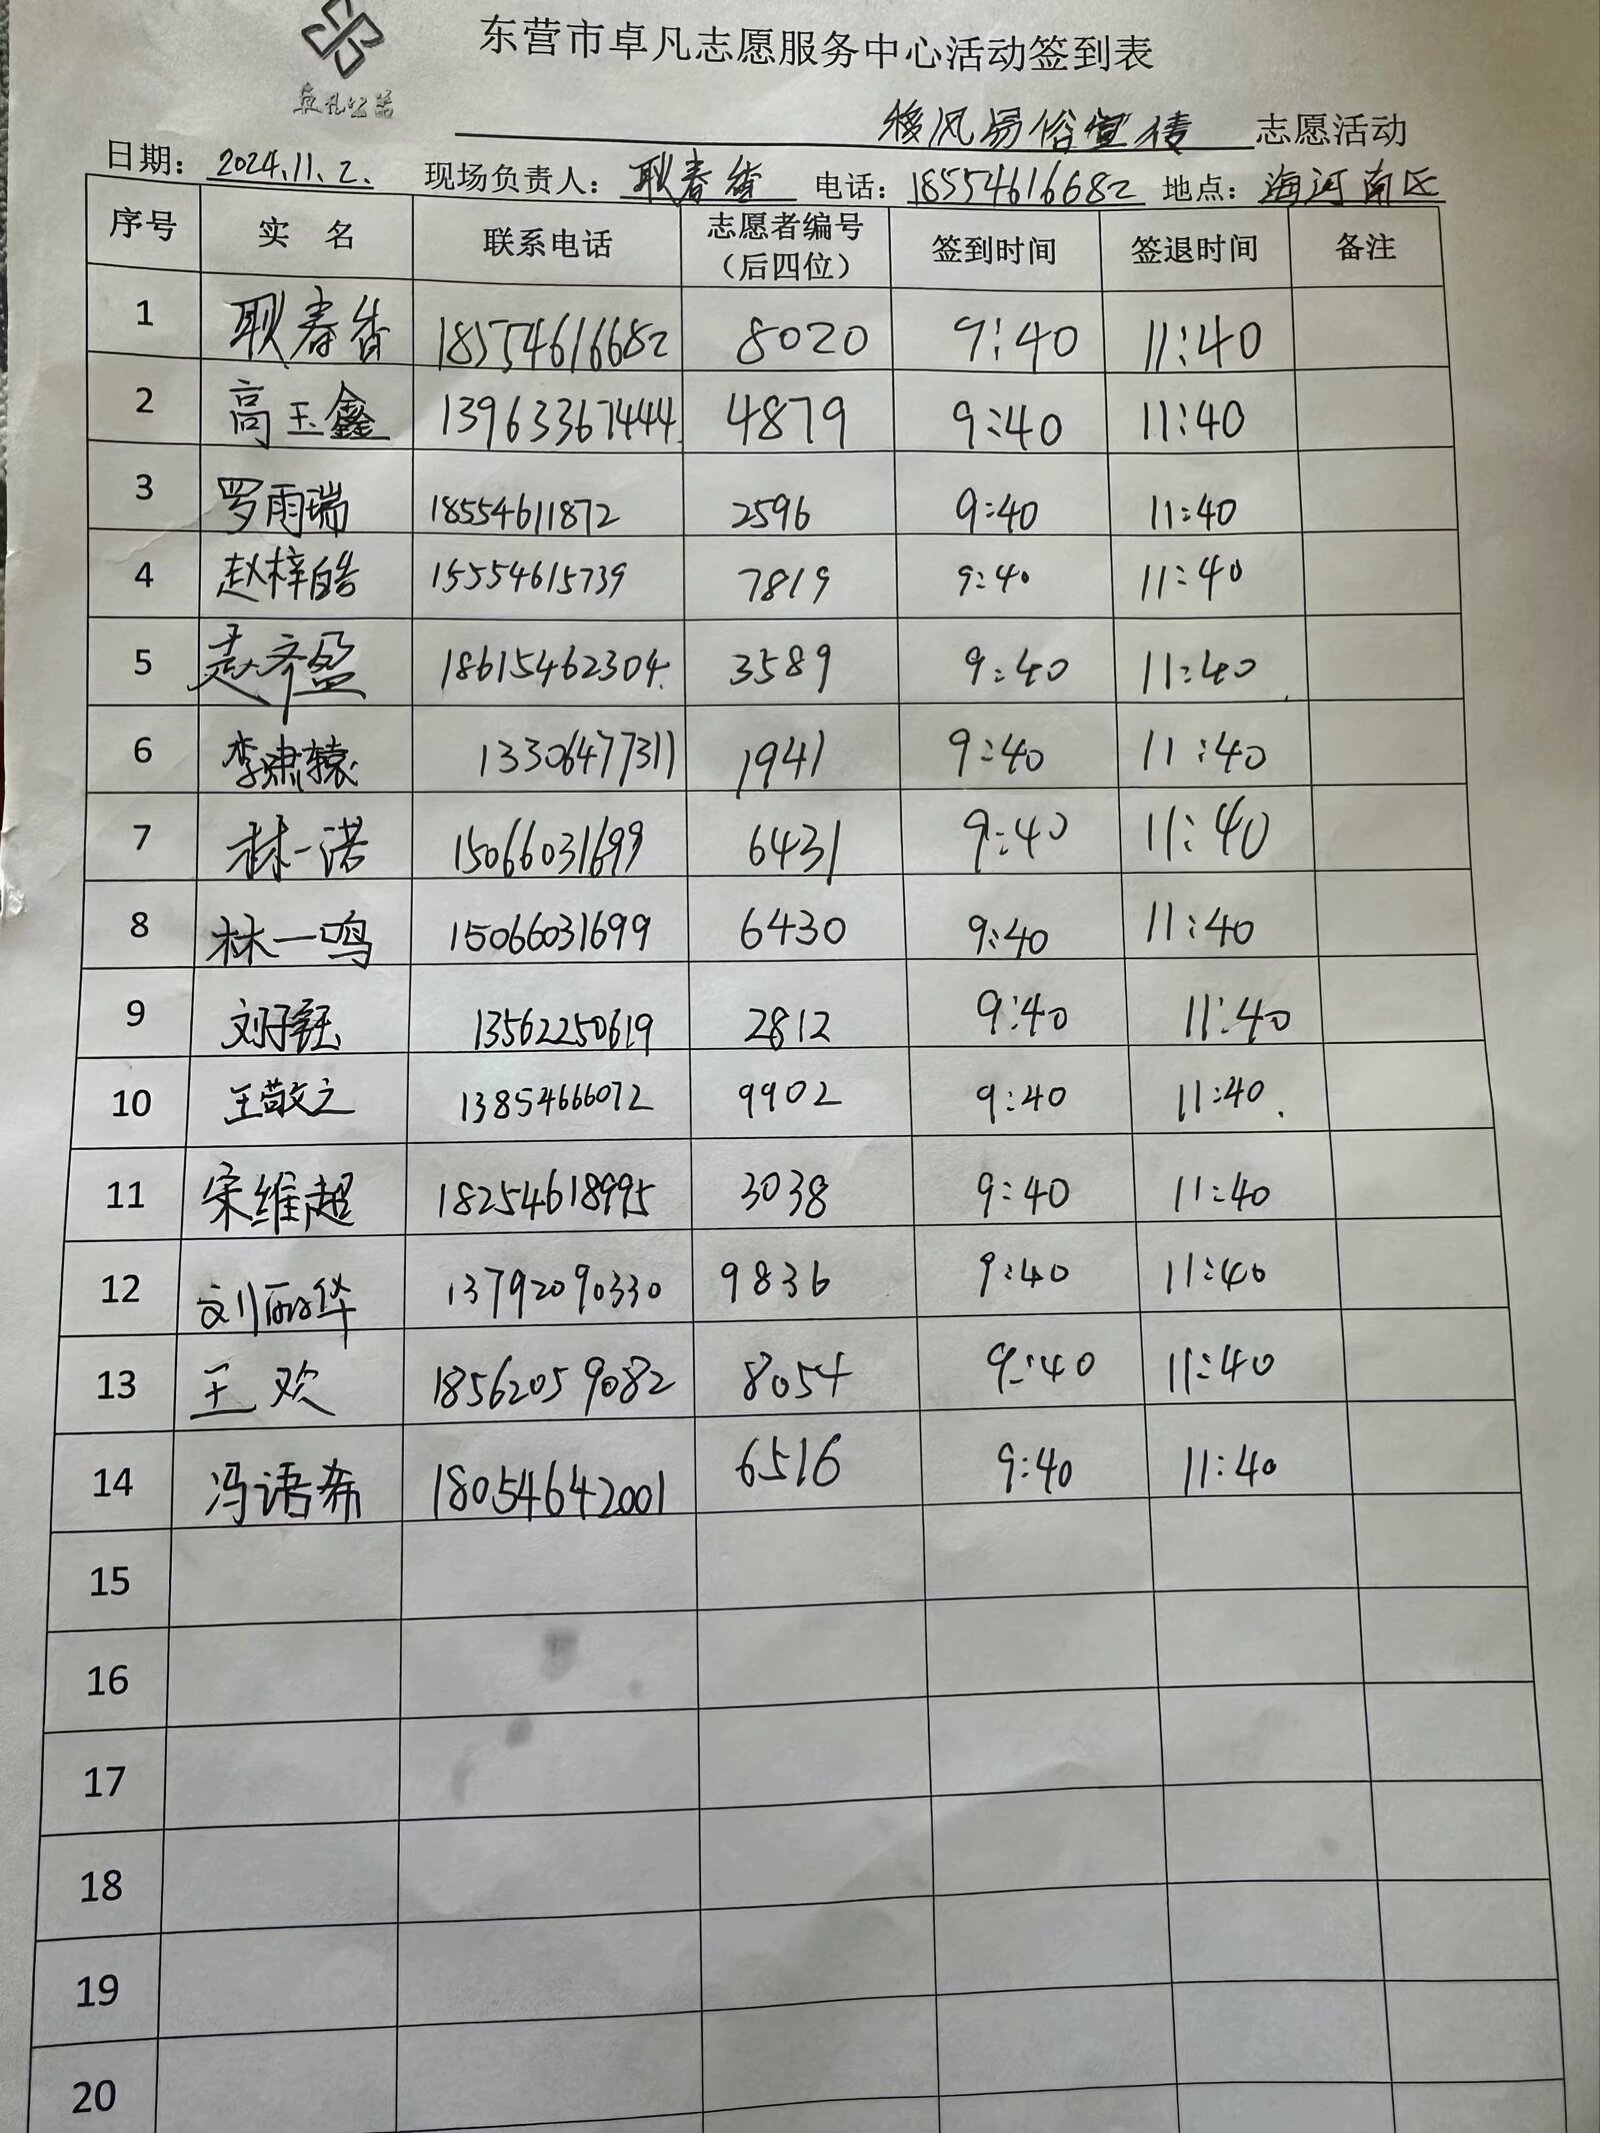 卓凡公益
东营市卓凡志愿服务中心活动签到表
移风易俗宣传 志愿活动
日期: 2024.11.2. 现场负责人: 耿春香 电话: 18554616682 地点: 海河南区
序号 实 名 联系电话 志愿者编号（后四位） 签到时间 签退时间 备注
1 耿春香 18554616682 8020 9:40 11:40
2 高玉鑫 13963367444 4879 9:40 11:40
3 罗雨瑞 18554611872 2596 9:40 11:40
4 赵梓皓 15554615739 7819 9:40 11:40
5 赵齐盈 18615462304 3589 9:40 11:40
6 李啸辕 13306477311 1941 9:40 11:40
7 林一诺 15066031699 6431 9:40 11:40
8 林一鸣 15066031699 6430 9:40 11:40
9 刘子钰 13562250619 2812 9:40 11:40
10 王敬之 13854666072 9902 9:40 11:40
11 宋维超 18254618995 3038 9:40 11:40
12 刘丽华 13792090330 9836 9:40 11:40
13 王欢 18562059082 8054 9:40 11:40
14 冯语希 18054642001 6516 9:40 11:40
15
16
17
18
19
20